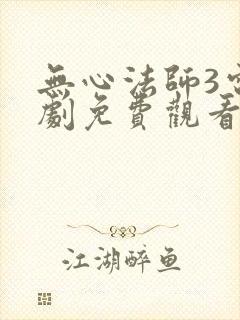 無心法師3
劇免費觀看
江湖醉鱼